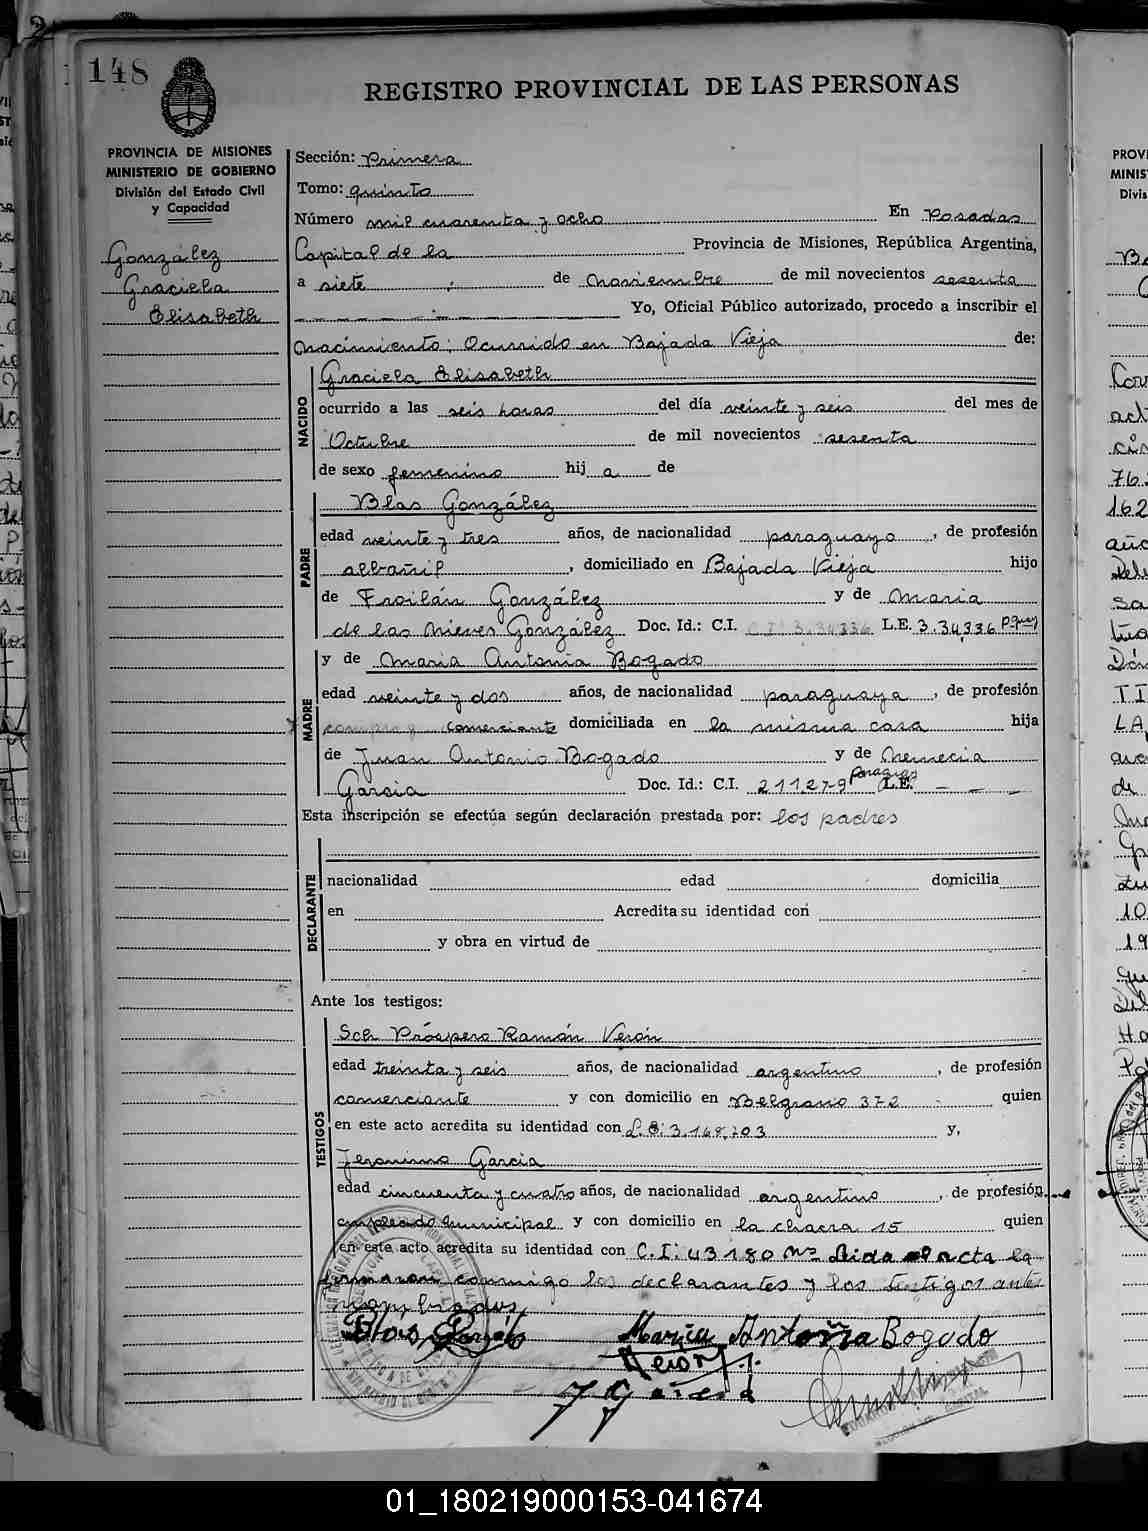 148
REGISTRO PROVINCIAL DE LAS PERSONAS
PROVINCIA DE MISIONES
MINISTERIO DE GOBIERNO
División del Estado Civil
y Capacidad
González
Graciela
Elisabeth
Sección: Primera
Tomo: quinto
Número mil cuarenta y ocho En Posadas
Capital de la Provincia de Misiones, República Argentina,
a siete de noviembre de mil novecientos sesenta
Yo, Oficial Público autorizado, procedo a inscribir el
nacimiento; Ocurrido en Bajada Vieja de:
NACIDO
Graciela Elisabeth
ocurrido a las seis horas del día veinte y seis del mes de
Octubre de mil novecientos sesenta
de sexo femenino hij a de
PADRE
Blas González
edad veinte y tres años, de nacionalidad paraguayo, de profesión
albañil, domiciliado en Bajada Vieja hijo
de Froilán González y de Maria
de las Nieves González Doc. Id.: C.I. C.I. 3.34336 L.E. 3.34,336 pguay
MADRE
y de Maria Antonia Bogado
edad veinte y dos años, de nacionalidad paraguaya, de profesión
comerciante domiciliada en la misma casa hija
de Juan Antonio Bogado y de Nemecia
Garcia Doc. Id.: C.I. 211.279 paraguay L.E. - - -
Esta inscripción se efectúa según declaración prestada por: los padres
DECLARANTE
nacionalidad edad domicilia
en Acredita su identidad con
y obra en virtud de
Ante los testigos:
TESTIGOS
Próspero Ramón Verón
edad treinta y seis años, de nacionalidad argentino, de profesión
comerciante y con domicilio en Belgrano 372 quien
en este acto acredita su identidad con L.E: 3.168,703 y,
Jeronimo Garcia
edad cincuenta y cuatro años, de nacionalidad argentino, de profesión
empleado municipal y con domicilio en la chacra 15 quien
en este acto acredita su identidad con C.I: 43180 Mns Leida el acta la
firmaron conmigo los declarantes y los testigos antes
nombrados
Blás González
Maria Antonia Bogado
Verón
J Garcia
01_180219000153-041674